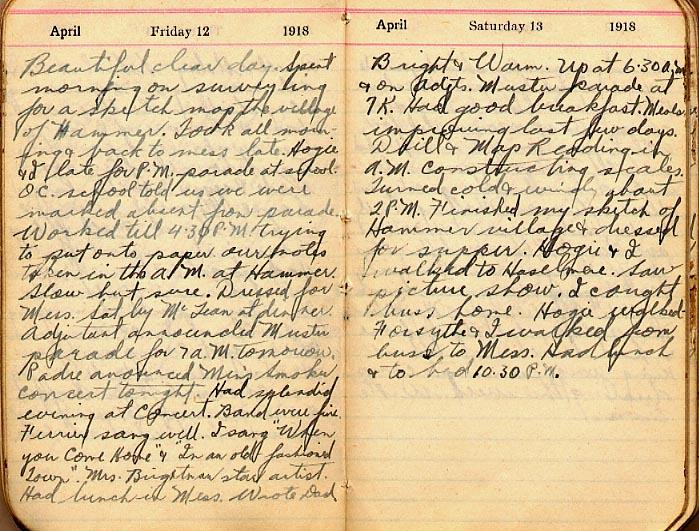 April Friday 12 1918
Beautiful clear day. Spent
morning on surveying
for a sketch map the village
of Hammer. Took all morn-
ing & back to mess late. Hogie
& I late for P.M. parade at school.
O.C. school told us we were
marked absent from parade.
Worked till 4:30 P.M. trying
to put onto paper our notes
taken in the A.M. at Hammer.
Slow but sure. Dressed for
Mess. Sat by McLean at dinner.
Adjutant announced Muster
parade for 7 a.M. tomorrow.
Padre anounced Men's Smoker
concert tonight. Had splendid
evening at Concert. Band were fine.
Ferrier sang well. I sang "When
you Come Home" & "In an old fashioned
Town". Mrs. Brightman star artist.
Had lunch in Mess. Wrote Dad
April Saturday 13 1918
Bright & Warm. Up at 6.30 a.m
& on Muster parade at
7K. Had good breakfast. Meals
improving last few days.
Drill & Map Reading in
A.M. constructing scales.
Turned cold & windy about
2 P.M. Finished my sketch of
Hammer village & dressed
for supper. Hogie & I
walked to Haselmere. Saw
picture show. I caught
buss home. Hogie walked.
Forsythe & I walked from
buss to Mess. Had lunch
& to bed 10.30 P.M.